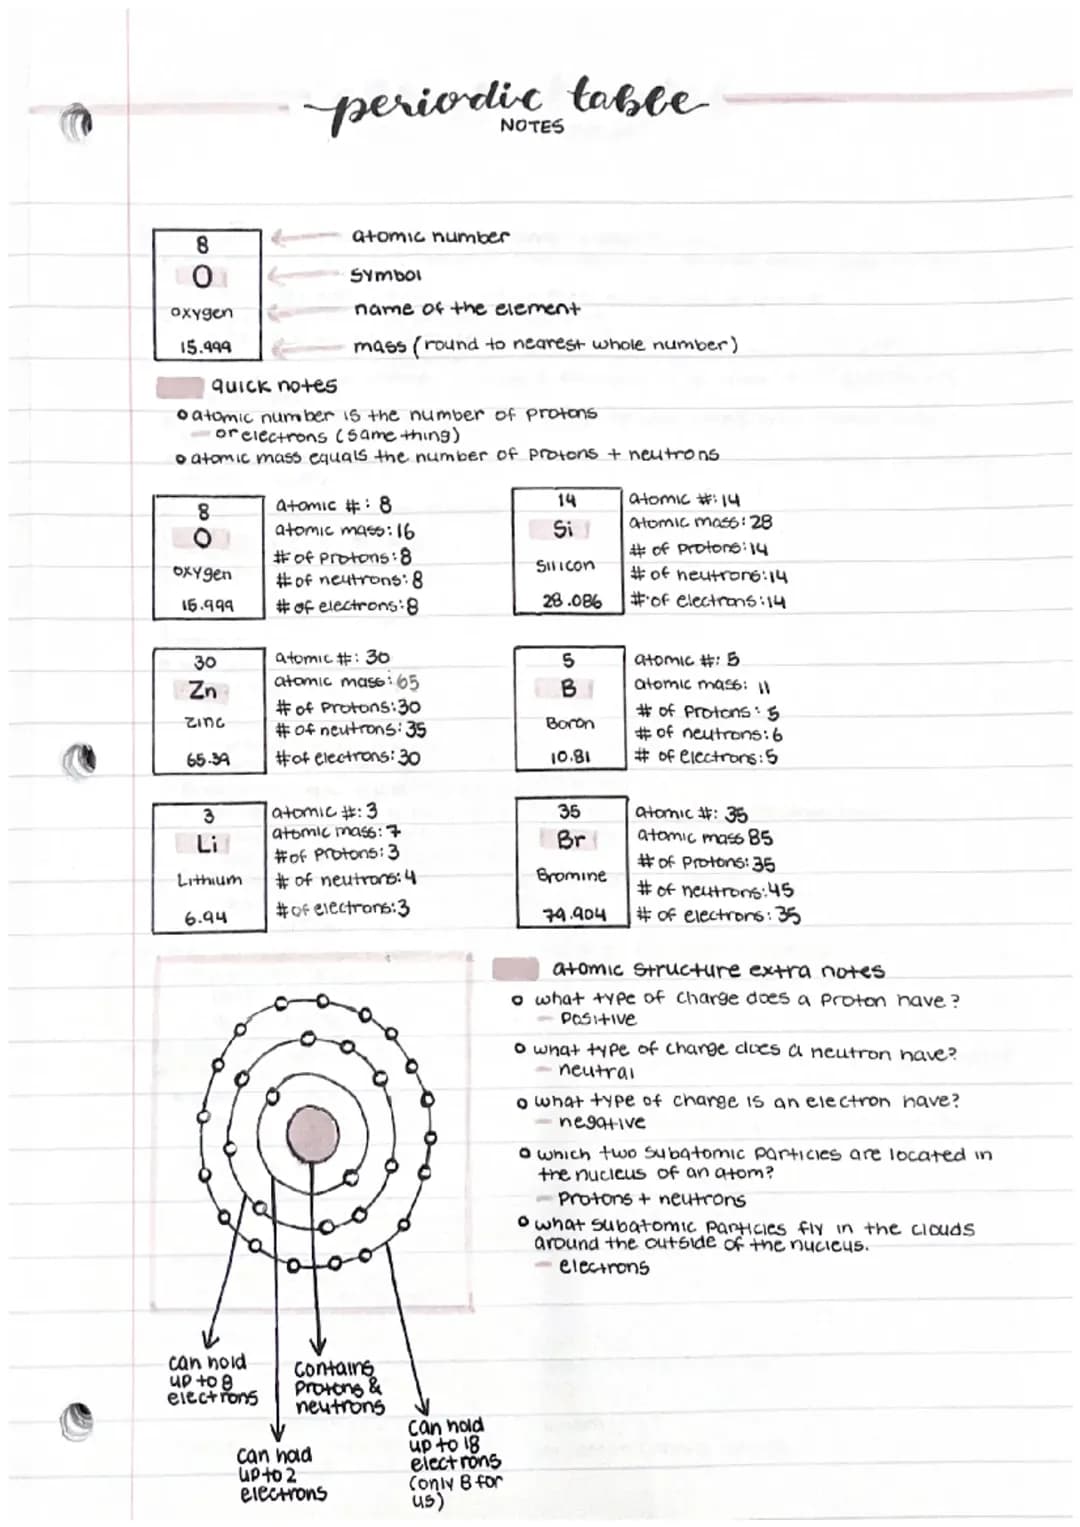 periodic table
NOTES
8
O
oxygen
15.999
atomic number
symbol
name of the element
mass (round to nearest whole number)
quick notes
atomic number is the number of protons
- or electrons (same thing)
atomic mass equals the number of protons + neutrons
8
O
oxygen
15.999
atomic #: 8
atomic mass: 16
# of protons: 8
# of neutrons: 8
# of electrons: 8
14
Si
Silicon
28.086
atomic #: 14
atomic mass: 28
# of protons: 14
# of neutrons: 14
# of electrons: 14
30
Zn
Zinc
65.39
atomic #: 30
atomic mass: 65
# of Protons: 30
# of neutrons: 35
# of electrons: 30
5
B
Boron
10.81
atomic #: 5
atomic mass: 11
# of Protons: 5
# of neutrons: 6
# of electrons: 5
3
Li
Lithium
6.94
atomic #: 3
atomic mass: 7
# of Protons: 3
# of neutrons: 4
# of electrons: 3
35
Br
Bromine
79.904
atomic #: 35
atomic mass 85
# of Protons: 35
# of neutrons: 45
# of electrons: 35
atomic structure extra notes
what type of charge does a proton have?
- Positive
what type of charge does a neutron have?
- neutral
what type of charge is an electron have?
- negative
which two subatomic particles are located in
the nucleus of an atom?
- Protons + neutrons
what subatomic particles fly in the clouds
around the outside of the nucleus.
- electrons
can hold
up to 8
electrons
Can hold
up to 2
electrons
Contains
Protons &
neutrons
Can hold
up to 18
electrons
(only 8 for
us)